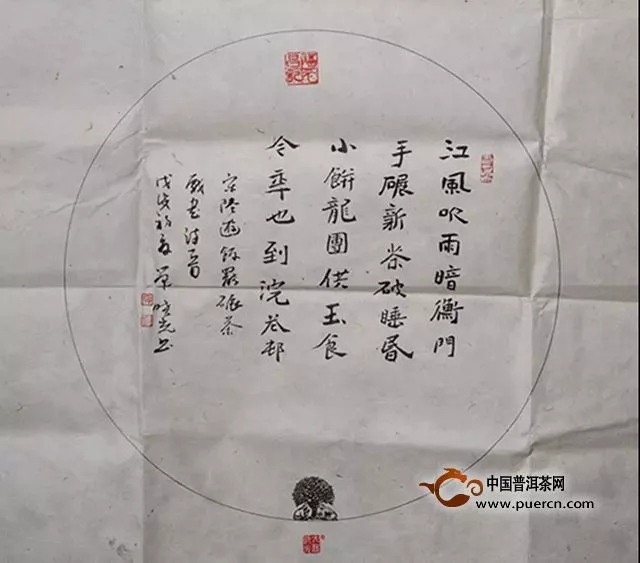 江風吹雨暗衡門
手碾新茶破睡昏
小餅龍團供玉食
今秊也到浣花邨
宋陸遊飯罷碾茶
戲書詩
戊戌初夏
中国普洱茶网
www.puercn.com